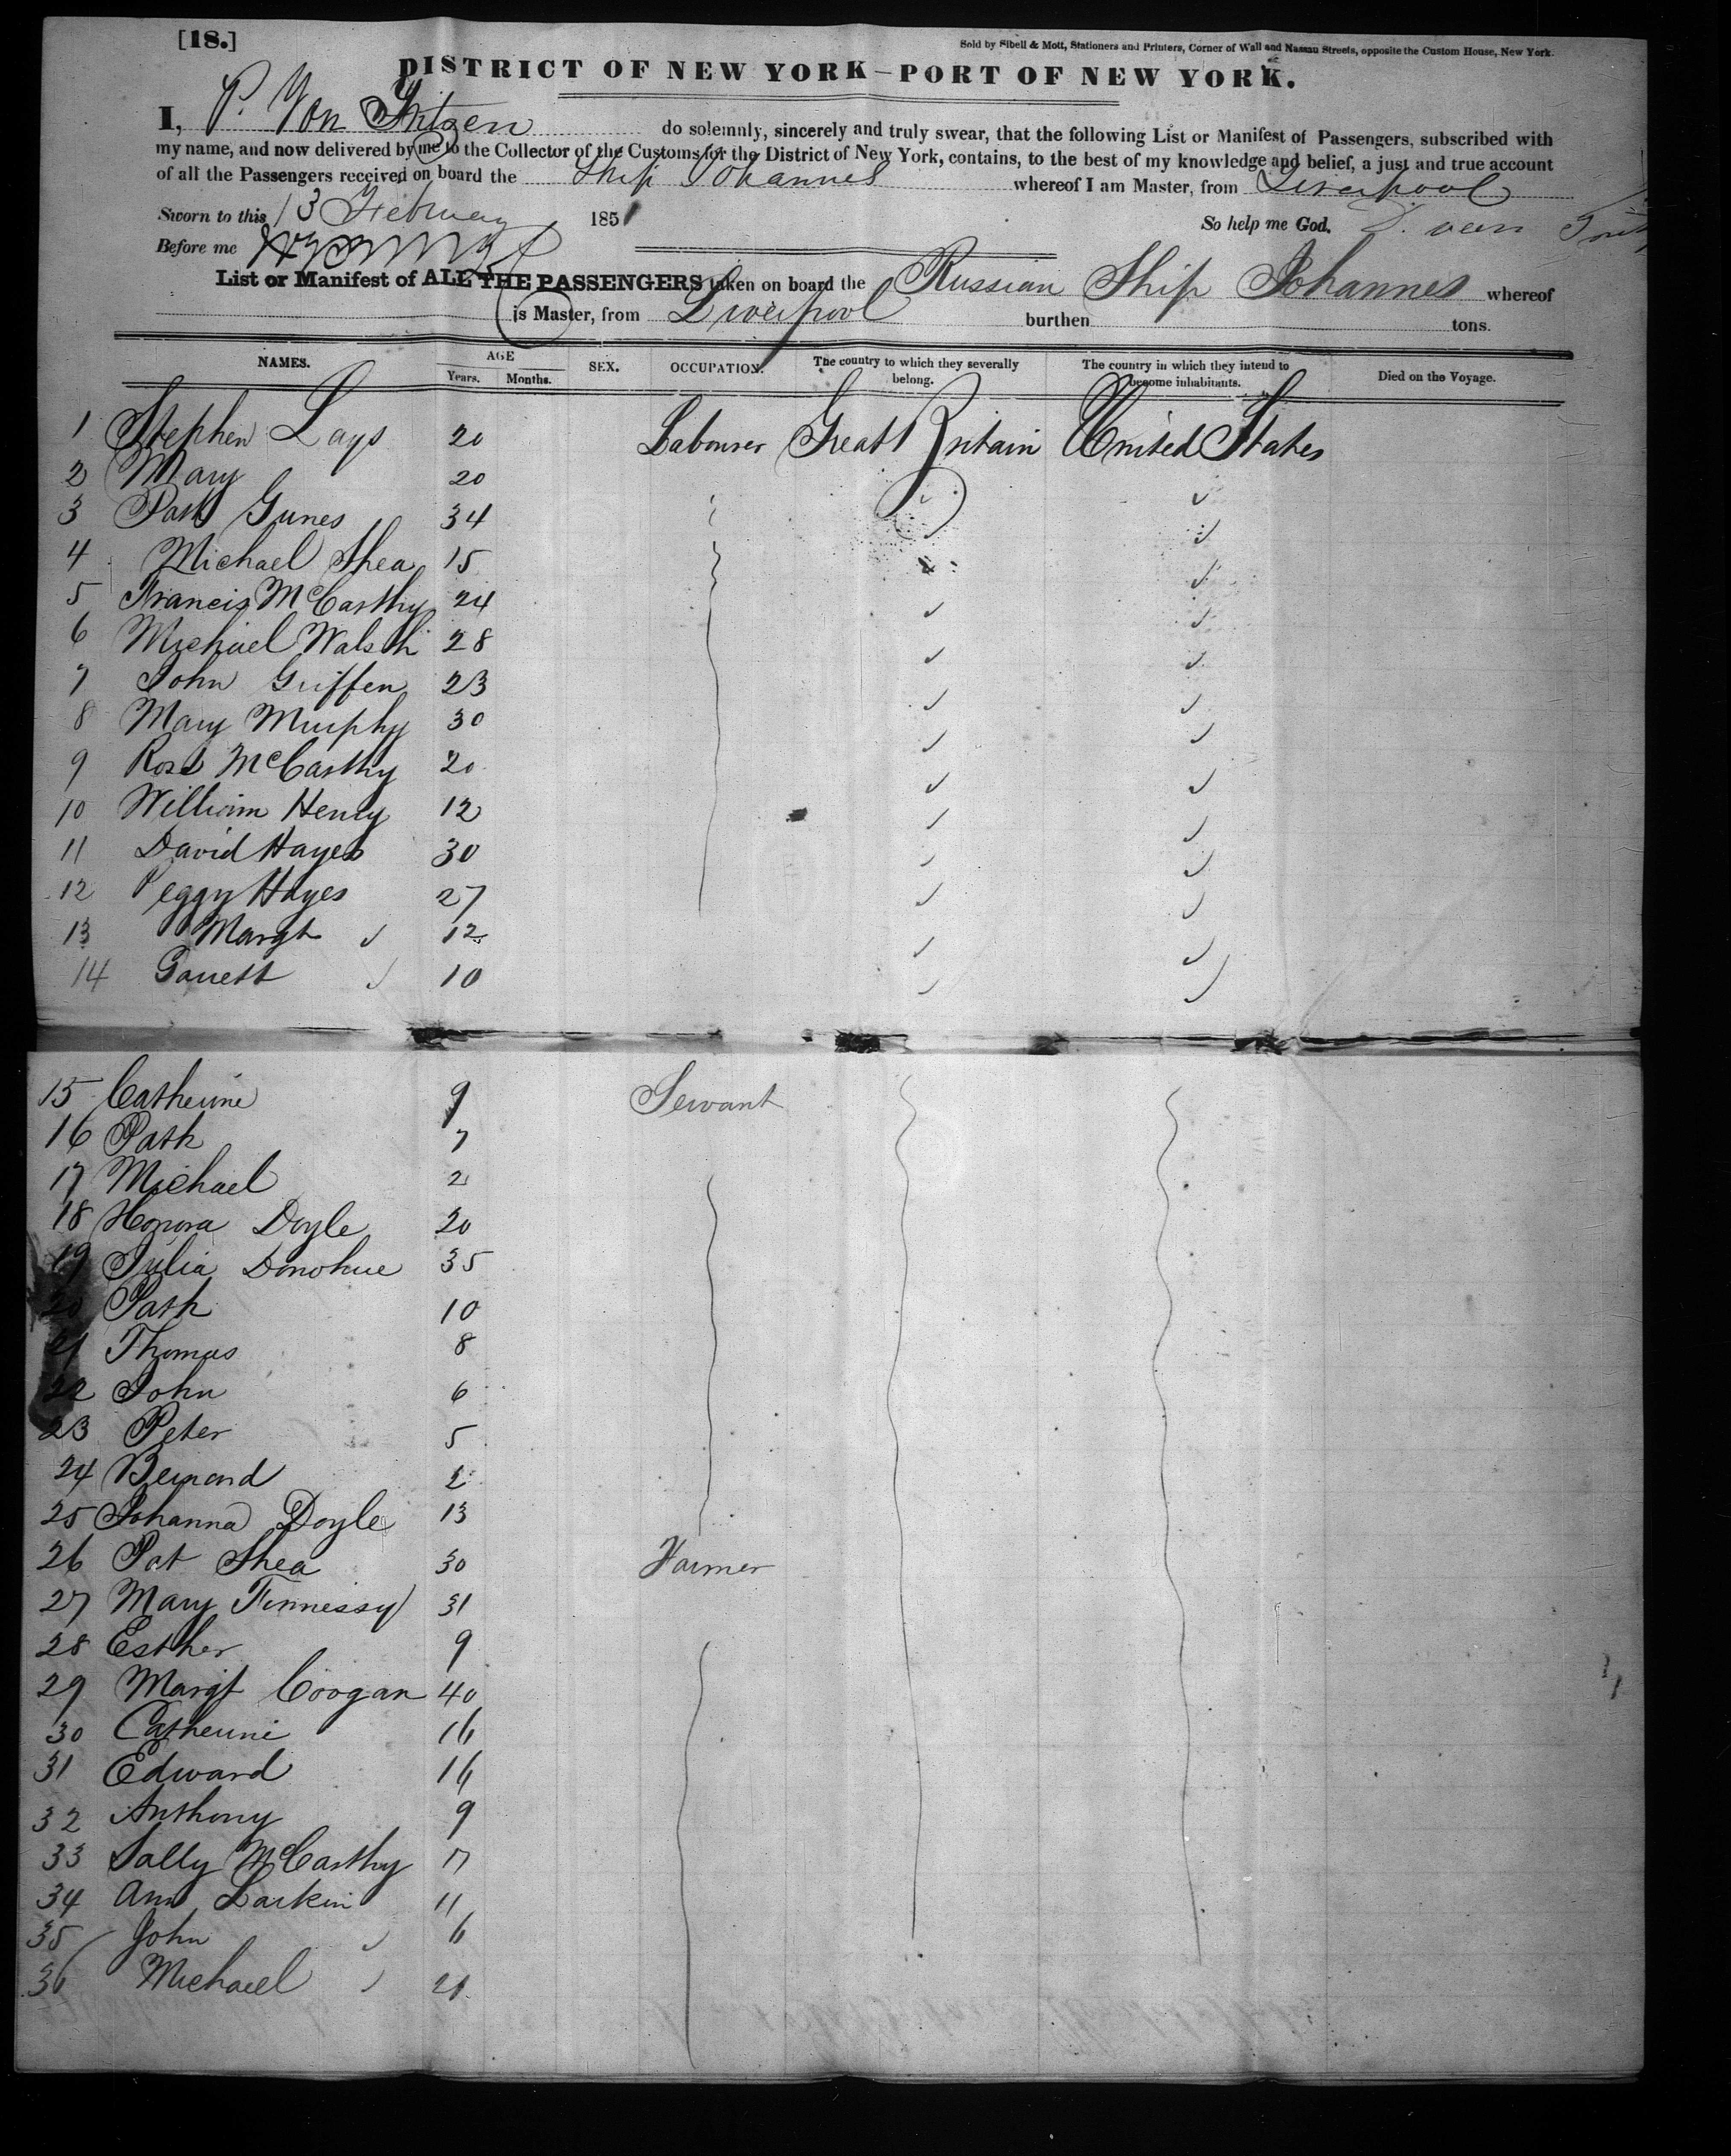 [18.]
Sold by Sibell & Mott, Stationers and Printers, Corner of Wall and Nassau Streets, opposite the Custom House, New York.
DISTRICT OF NEW YORK—PORT OF NEW YORK.
I, P. Von do solemnly, sincerely and truly swear, that the following List or Manifest of Passengers, subscribed with
my name, and now delivered by me to the Collector of the Customs for the District of New York, contains, to the best of my knowledge and belief, a just and true account
of all the Passengers received on board the Ship Johannes whereof I am Master, from Liverpool
Sworn to this 13 February 1851 So help me God.
Before me
List or Manifest of ALL THE PASSENGERS taken on board the Russian Ship Johannes whereof
is Master, from Liverpool burthen tons.
NAMES. AGE Years. Months. SEX. OCCUPATION. The country to which they severally belong. The country in which they intend to become inhabitants. Died on the Voyage.
1 Stephen Lays 20 Labourer Great Britain United States
2 Mary 20
3 Patk Gunes 34
4 Michael Shea 15
5 Francis McCarthy 24
6 Michael Walsh 28
7 John Griffen 23
8 Mary Murphy 30
9 Rose McCarthy 20
10 William Henry 12
11 David Hayes 30
12 Peggy Hayes 27
13 Margt 12
14 Garrett 10
15 Catherine 9 Servant
16 Patk 7
17 Michael 2
18 Honora Doyle 20
19 Julia Donohue 35
20 Patk 10
21 Thomas 8
22 John 6
23 Peter 5
24 Bernard 2
25 Johanna Doyle 13
26 Pat Shea 30 Farmer
27 Mary Finnessy 31
28 Esther 9
29 Margt Coogan 40
30 Catherine 16
31 Edward 16
32 Anthony 9
33 Sally McCarthy 17
34 Ann Larkin 11
35 John 6
36 Michael